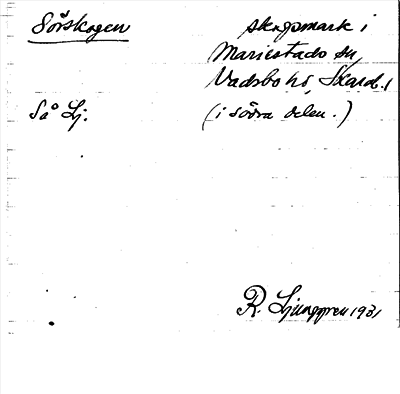 Sörskogen
skogsmark i
Mariestads sn,
Vadsbo hd, Skarab. l
Så Lj.
(i södra delen.)
R. Ljunggren 1931